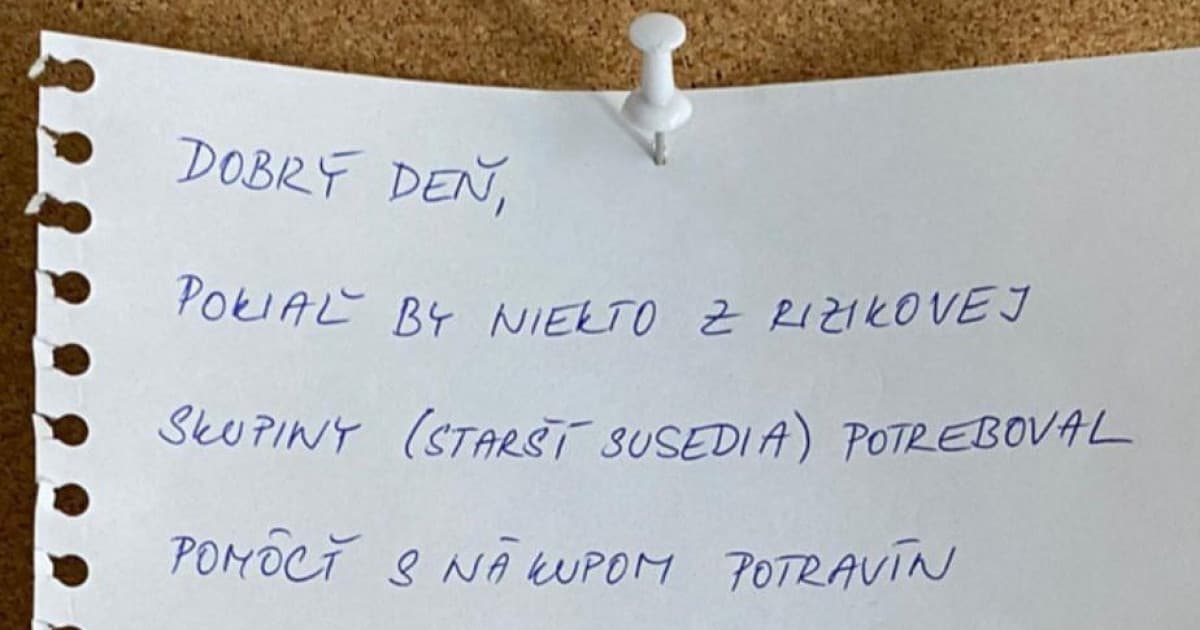 DOBRÝ DEŇ,
POKIAĽ BY NIEKTO Z RIZIKOVEJ
SKUPINY (STARŠÍ SUSEDIA) POTREBOVAL
POMÔCŤ S NÁKUPOM POTRAVÍN